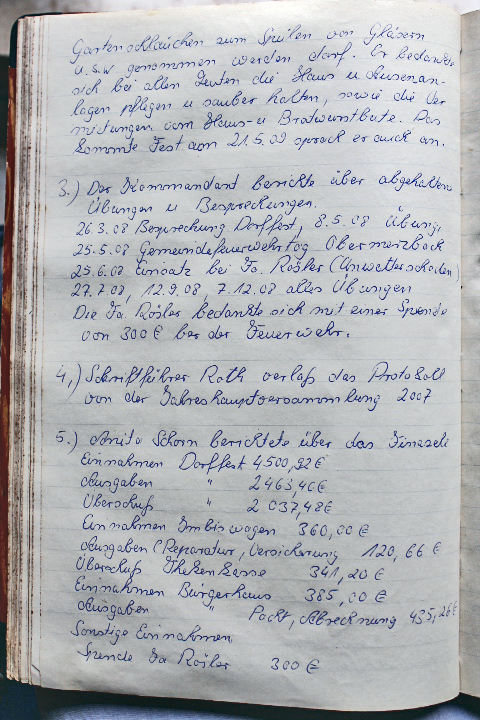 Gartenschläuchen zum Spülen von Gläsern
u.s.w genommen werden darf. Er bedankte
sich bei allen Leuten die Haus u Ausenan-
lagen pflegen u sauber halten, sowie die Ver
mietungen vom Haus- u Bratwurstbute. Das
kommte Fest am 21.5.09 sprach er auch an.
3.) Der Kommandant berichte über abgehalten
Übungen u Besprechungen.
26.3.08 Besprechung Dorffest, 8.5.08 Übung,
25.5.08 Gemeindefeuerwehrtag Obermerzbach
25.6.08 Einsatz bei Fa. Rösler (Unwetterschaden)
27.7.08, 12.9.08, 7.12.08 alles Übungen
Die Fa. Rösler bedankte sich mit einer Spende
von 300 € bei der Feuerwehr.
4.) Schriftführer Roth verlaß das Protokoll
von der Jahreshauptversammlung 2007
5.) Anita Schorn berichtete über das Finazielle
Einnahmen Dorffest 4500,92 €
Ausgaben " 2463,40 €
Überschuß " 2037,48 €
Einnahmen Imbiswagen 360,00 €
Ausgaben (Reparatur, Versicherung 120,66 €
Überschuß Thekenkasse 341,20 €
Einnahmen Bürgerhaus 385,00 €
Ausgaben " Pacht, Abrechnung 435,26 €
Sonstige Einnahmen
Spende Fa Rösler 300 €